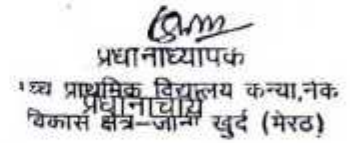 प्रधानाध्यापक
उच्च प्राथमिक विद्यालय कन्या,नेक
प्रधानाचार्य
विकास क्षेत्र–जानी खुर्द (मेरठ)